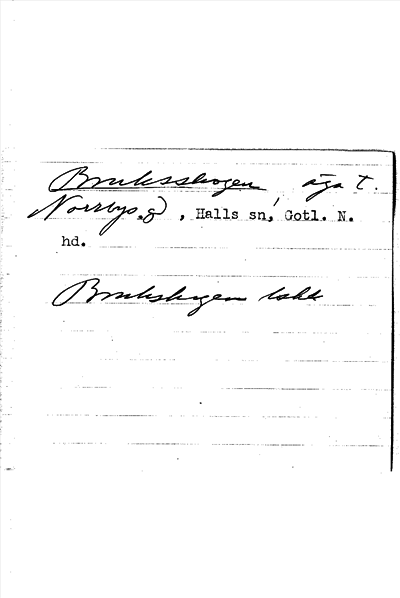 Bruksskogen, äga t.
Norrbys g, Halls sn, Gotl. N.
hd.
Brukskogen